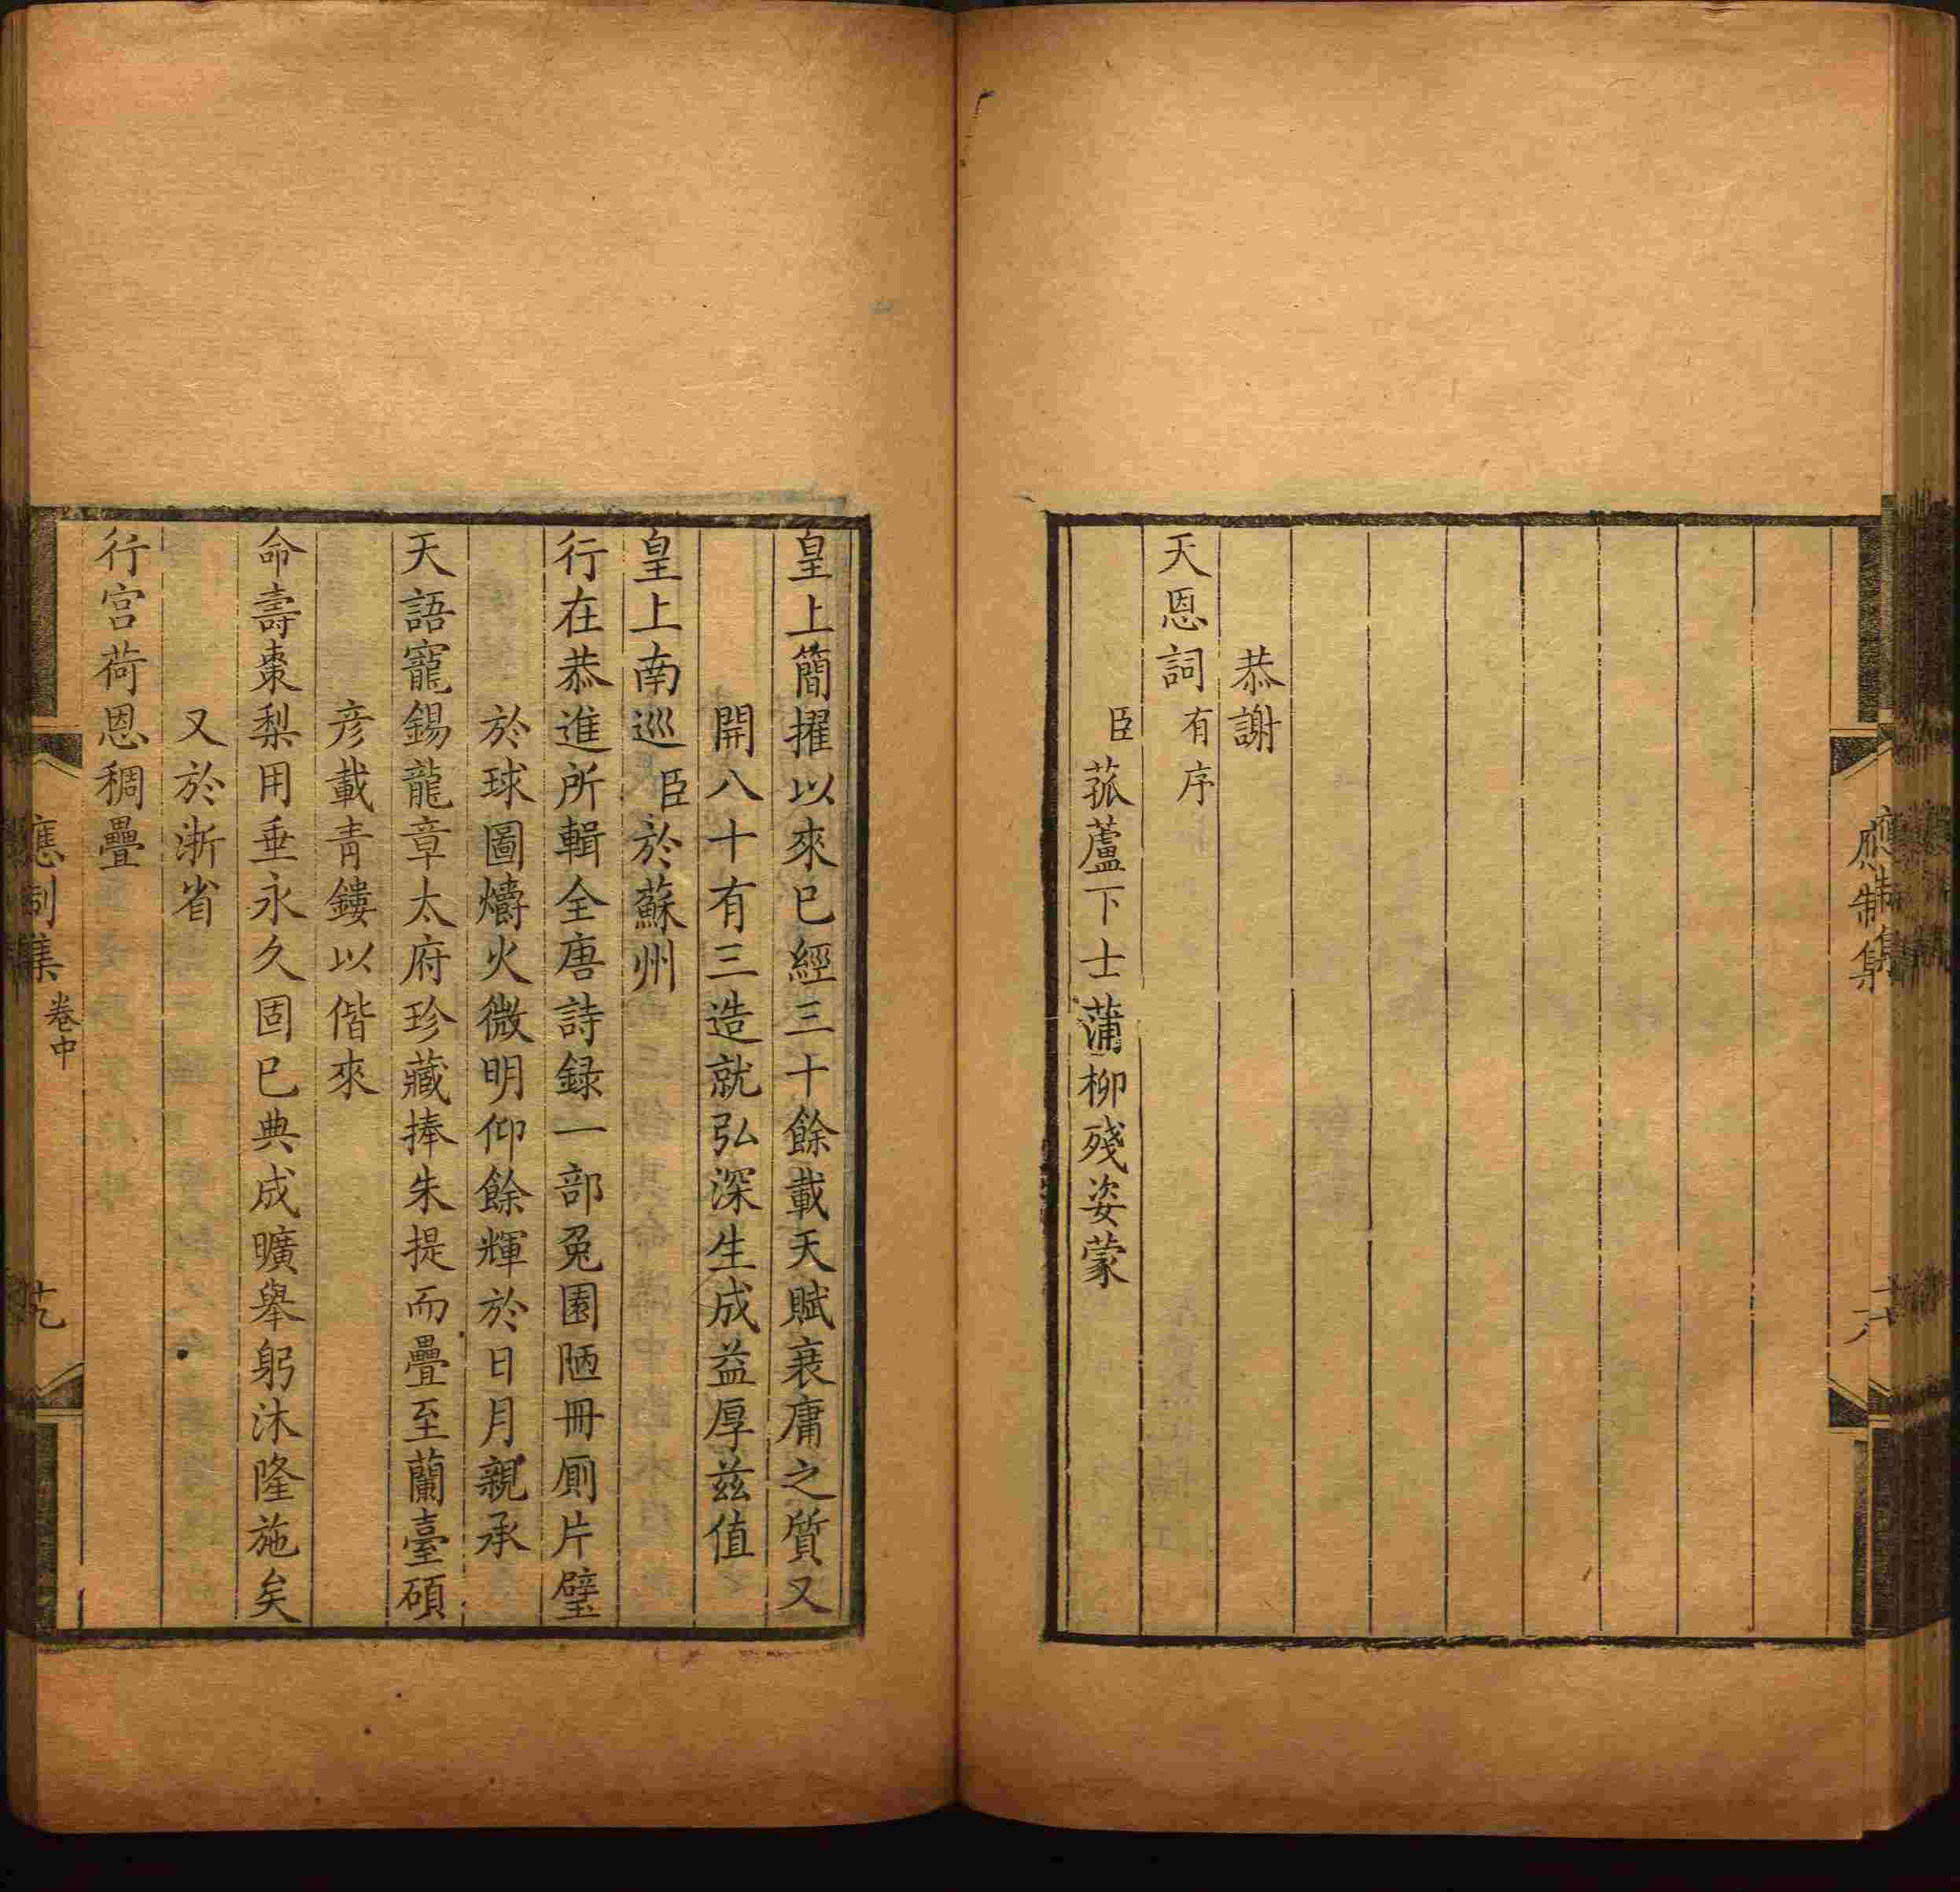 恭謝
天恩詞有序
臣菰蘆下士蒲柳殘姿蒙
皇上簡擢以來已經三十餘載天賦衰庸之質又
開八十有三造就弘深生成益厚茲值
皇上南巡臣於蘇州
行在恭進所輯全唐詩録一部兔園陋冊厠片璧
於球圖爝火微明仰餘輝於日月親承
天語寵錫龍章太府珍藏捧朱提而疊至蘭臺碩
彦載青鏤以偕來
命壽棗梨用垂永久固已典成曠舉躬沐隆施矣
又於浙省
行宫荷恩稠疊
應制集
卷中